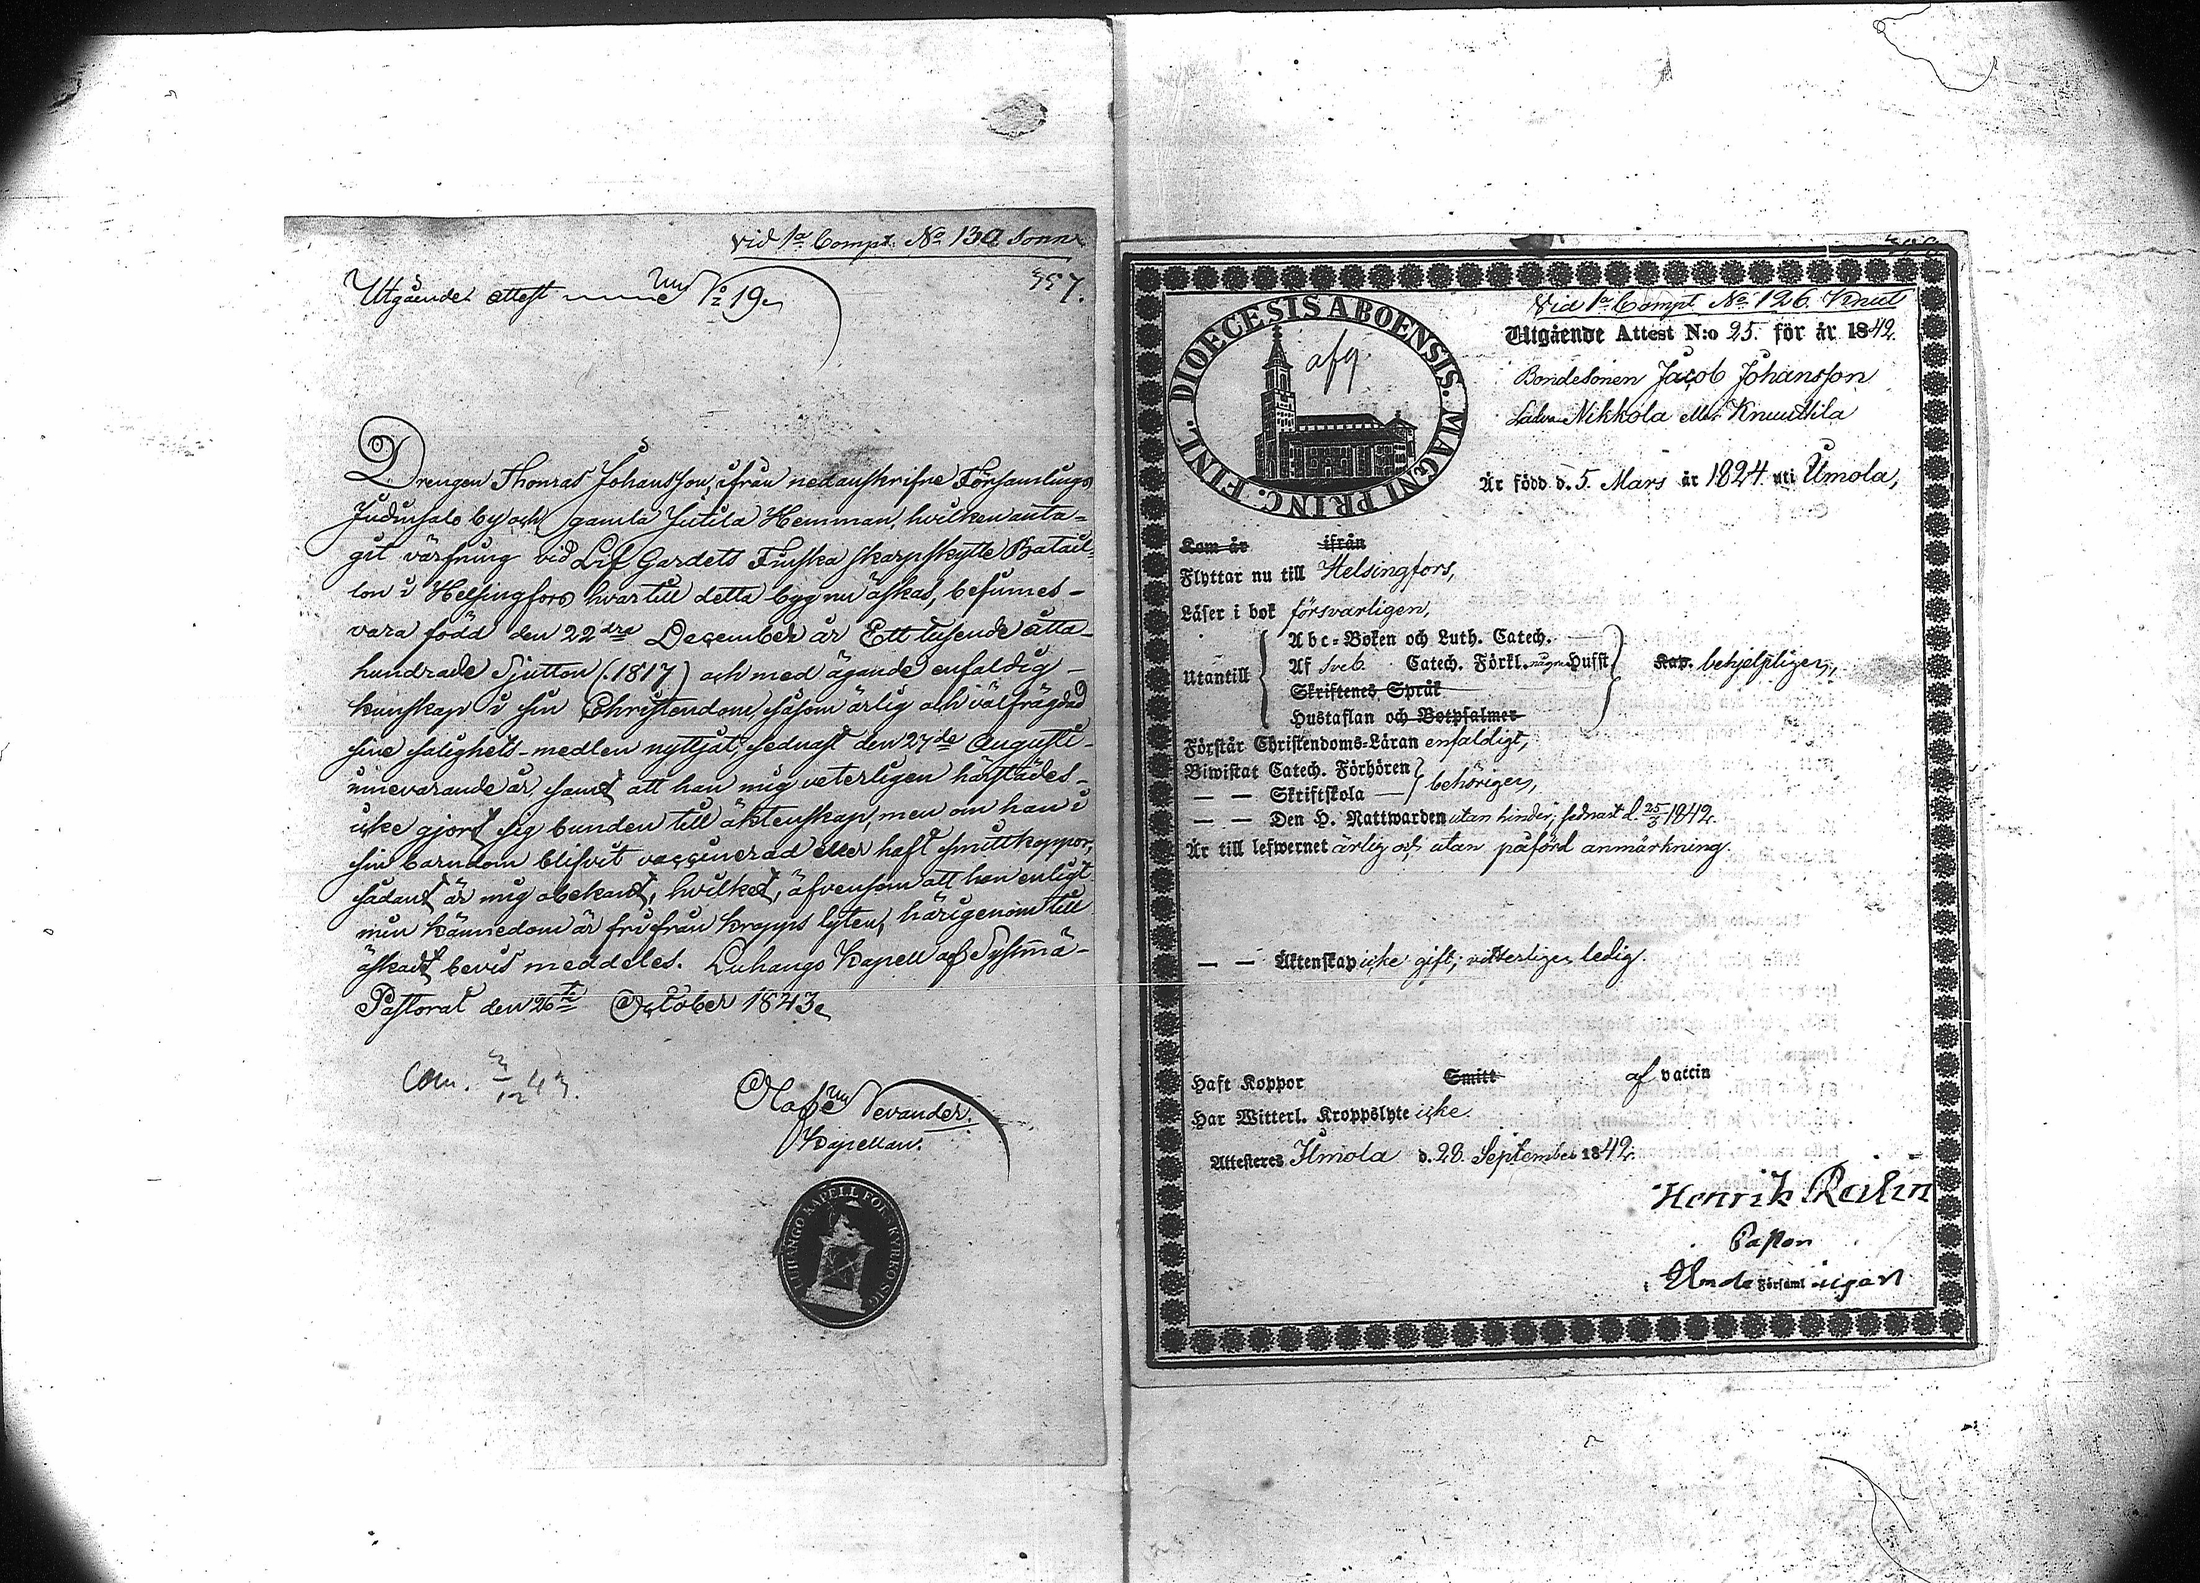 Vid 1a Compt. No 130 Sonn
357.
Utgående attest No 19
Drengen Thomas Johansson, ifrån nedanskrifne Församlings
Judinsalo by och gamla Jutila Hemman, hvilken anta-
git värfning vid Lif Gardets Finska skarpskytte Batail-
lon i Helsingfors hvartill detta byg nu äskas, befinnes
vara född den 22dra December år Ett tusende åtta-
hundrade Sjutton (1817) och med ägande enfaldig
kunskap i sin Christendom, såsom ärlig och välfrägdad
sine salighets-medlen nyttjat, sednast den 27de Augusti
innevarande år, samt att han mig veterligen härstädes
icke gjort sig bunden till äktenskap, men om han i
sin barndom blifvit vaccinerad eller haft smittkoppor,
sådant är mig obekant, hvilket, äfvensom att han enligt
min kännedom är fri från kropps lyten, härigenom till
äskadt bevis meddeles. Luhango Kapell af Sysmä
Pastorat den 26te October 1843
3/12 43.
Olof Nevander.
Kapellan.
LUHANGO KAPELL FÖRS. KYRKO SIG.
Vid 1a Compt No 126. Knut
DIOECESIS ABOENSIS. MAGNI PRINC. FINL.
afg.
Utgående Attest N:o 25. för år 1842.
Bondesonen Jacob Johansson
Nikkola eller Knuuttila
Är född d. 5. Mars år 1824 uti Ilmola,
Kom år ifrån
Flyttar nu till Helsingfors,
Läser i bok försvarligen,
Abc-Boken och Luth. Catech.
Utantill Af Sveb. Catech. Förkl. några Hufst. Kap. behjelpligen,
Skriftenes Språk
Hustaflan och Botpsalmer
Förstår Christendoms-Läran enfaldigt,
Biwistat Catech. Förhören
— — Skriftskola — behörigen,
— — Den H. Nattwarden utan hinder, sednast d. 25/3 1842.
Är till lefwernet ärlig och utan påförd anmärkning.
— — Äktenskap icke gift; vitterligen ledig.
Haft Koppor Smitt af vaccin
Har Witterl. Kroppslyte icke.
Attesteres Ilmola d. 28. September 1842.
Henrik Reilin
Pastor
i Ilmola Församl